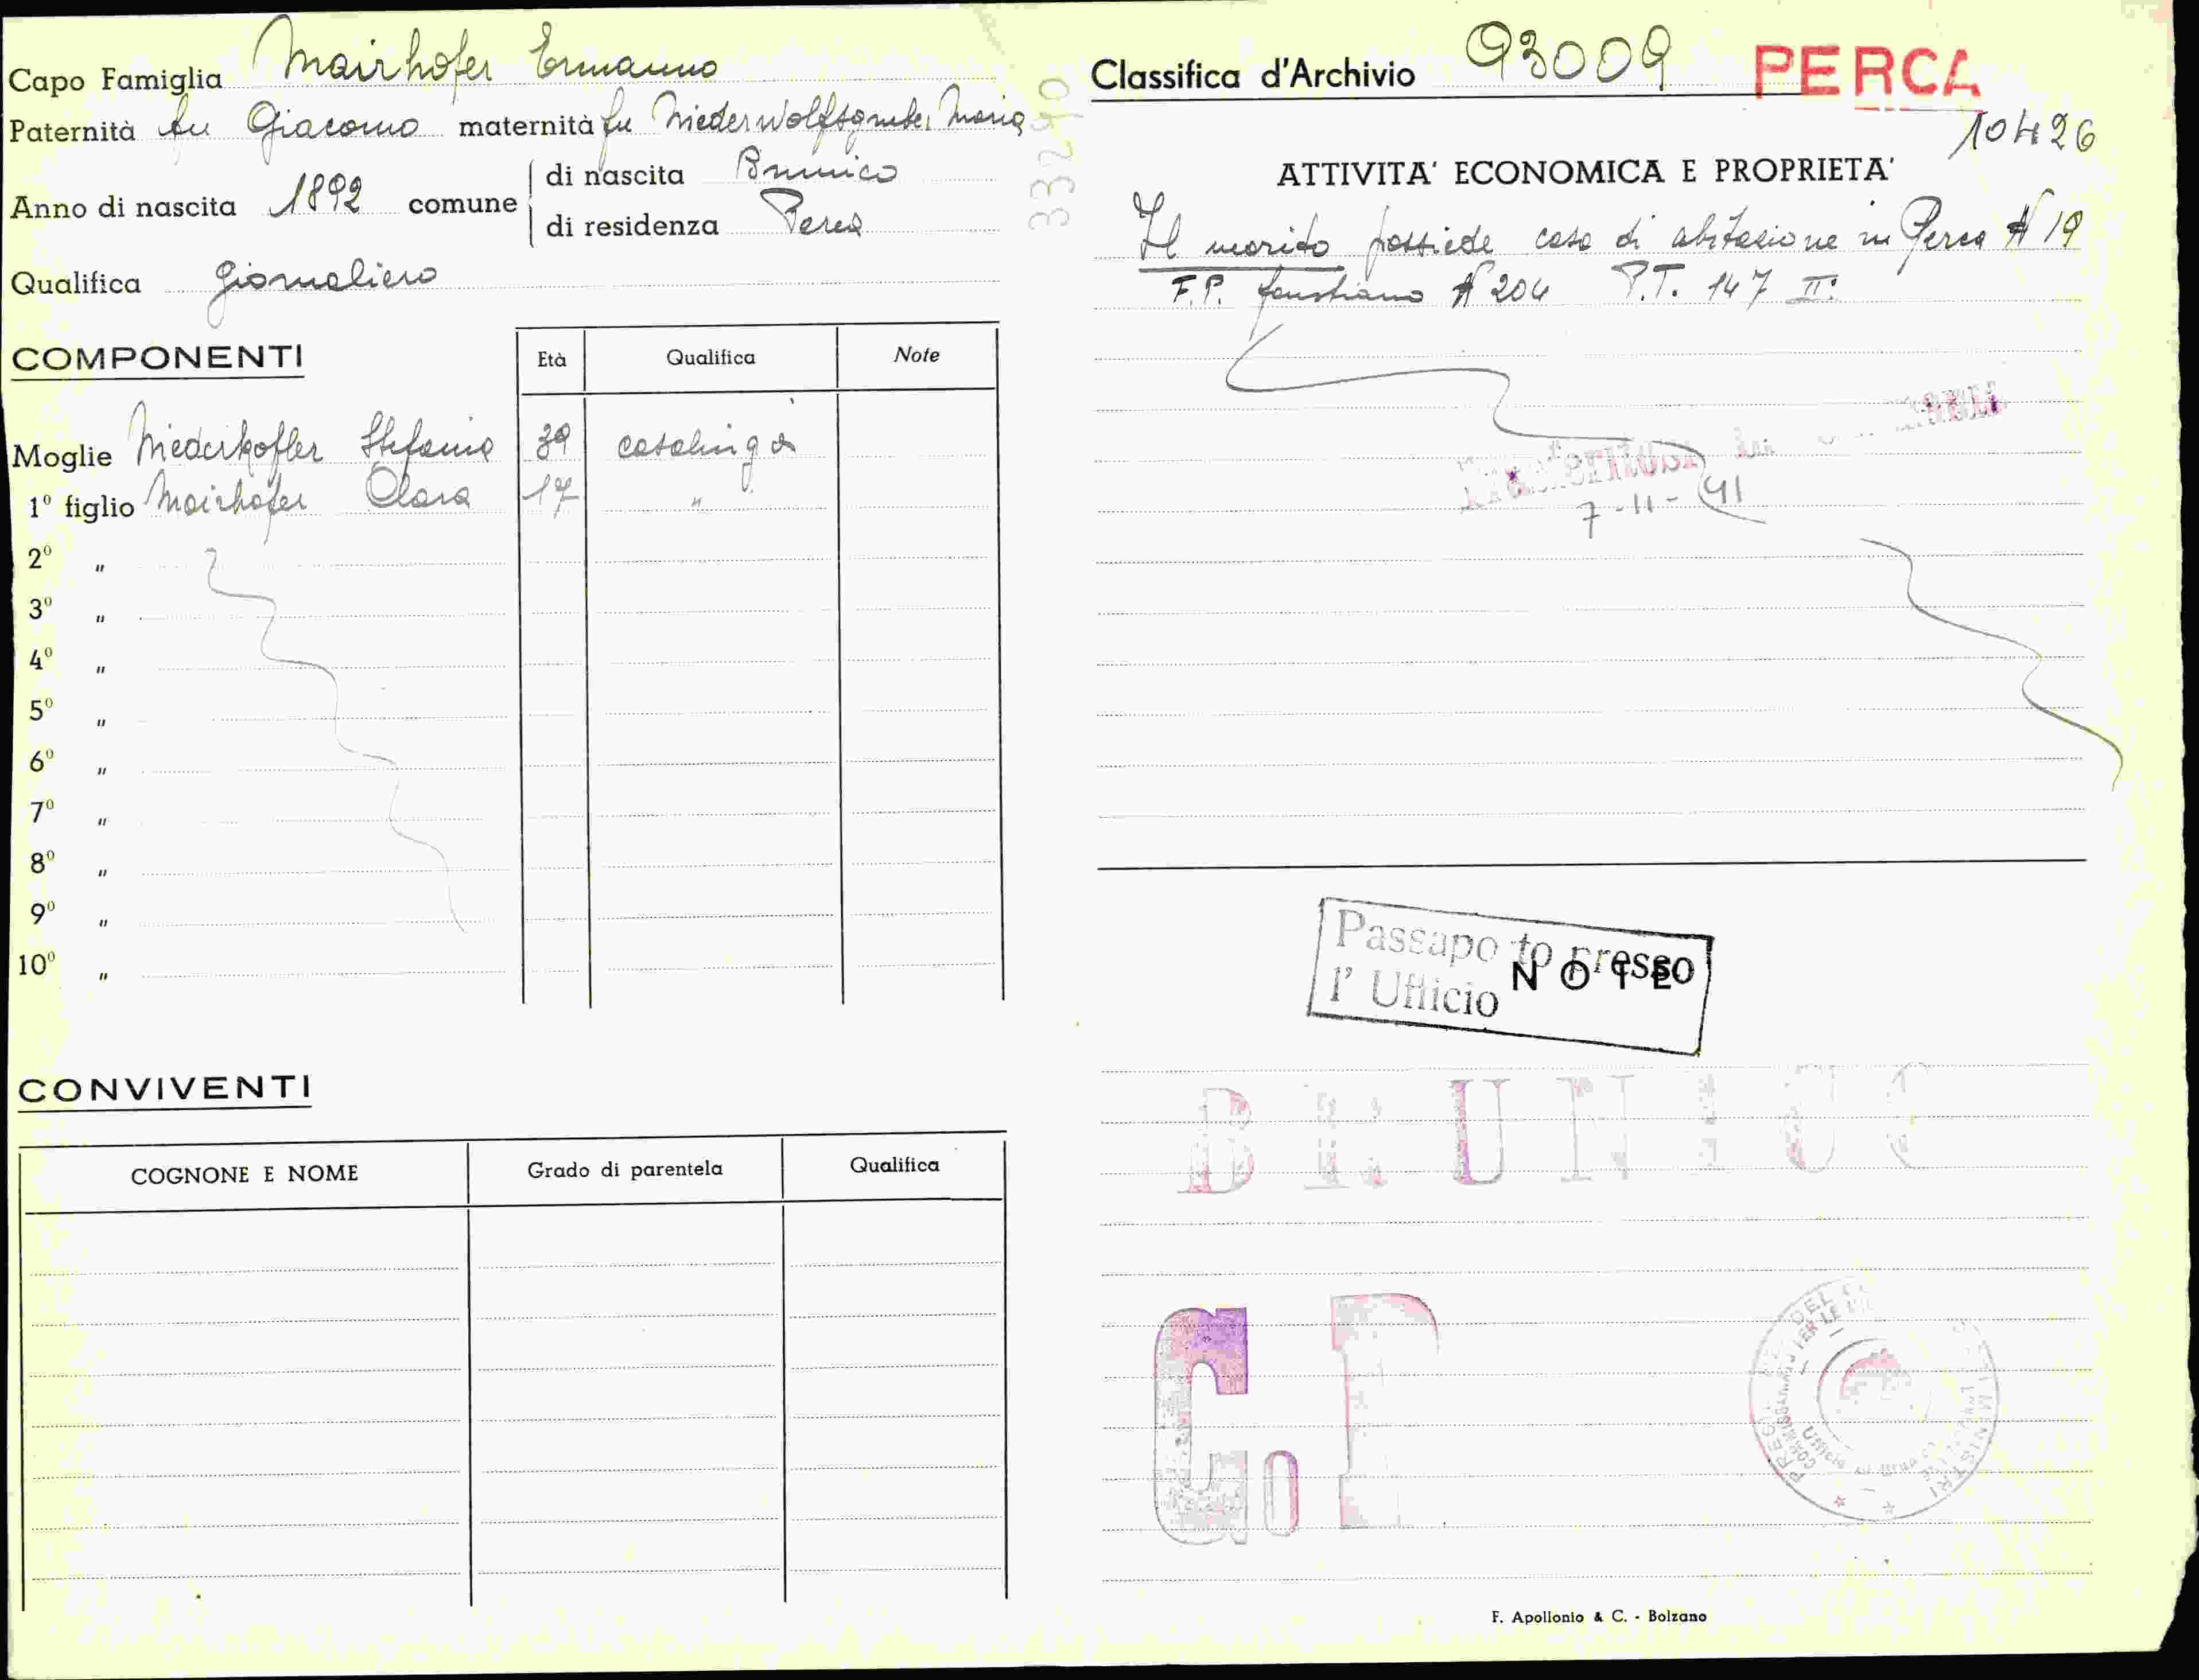 Capo Famiglia Mairhofer Ermanno
Paternità fu Giacomo maternità fu Niederwolfsgruber Maria
Anno di nascita 1892 comune
di nascita Brunico
di residenza Perca
Qualifica giornaliero
COMPONENTI
Età Qualifica Note
Moglie Niederkofler Stefania 39 casalinga
1° figlio Mairhofer Clara 17 "
2° "
3° "
4° "
5° "
6° "
7° "
8° "
9° "
10° "
CONVIVENTI
COGNONE E NOME Grado di parentela Qualifica
33240
Classifica d'Archivio 93009 PERCA
10426
ATTIVITA' ECONOMICA E PROPRIETA'
Il marito possiede casa di abitazione in Perca N 19
F.P. N 204 P.T. 147 II:
7-11-41
Passapo to presso
l' Ufficio
NOTE
BRUNICO
G
PRES DEL MINISTRI
F. Apollonio & C. - Bolzano